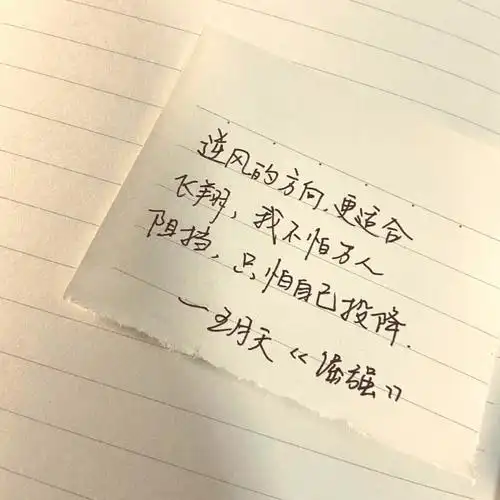 逆风的方向,更适合
飞翔,我不怕万人
阻挡,只怕自己投降.
—五月天《倔强》